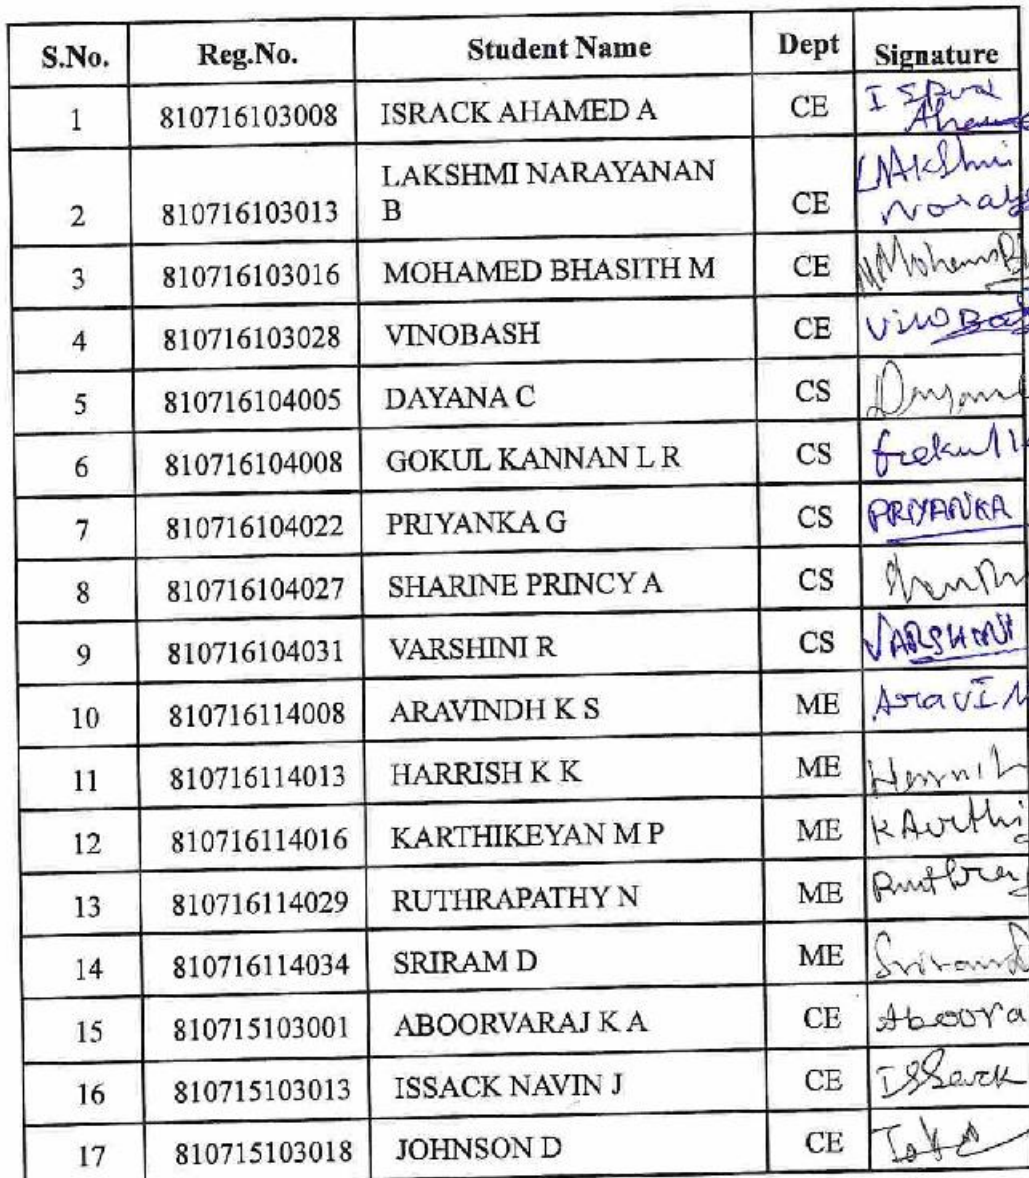 S.No. Reg.No. Student Name Dept Signature
1 810716103008 ISRACK AHAMED A CE
LAKSHMI NARAYANAN
2 810716103013 B CE Lakshmi
3 810716103016 MOHAMED BHASITH M CE
4 810716103028 VINOBASH CE
5 810716104005 DAYANA C CS
6 810716104008 GOKUL KANNAN L R CS
7 810716104022 PRIYANKA G CS PRIYANKA
8 810716104027 SHARINE PRINCY A CS
9 810716104031 VARSHINI R CS VARSHINI
10 810716114008 ARAVINDH K S ME
11 810716114013 HARRISH K K ME
12 810716114016 KARTHIKEYAN M P ME
13 810716114029 RUTHRAPATHY N ME
14 810716114034 SRIRAM D ME
15 810715103001 ABOORVARAJ K A CE Aboora
16 810715103013 ISSACK NAVIN J CE
17 810715103018 JOHNSON D CE